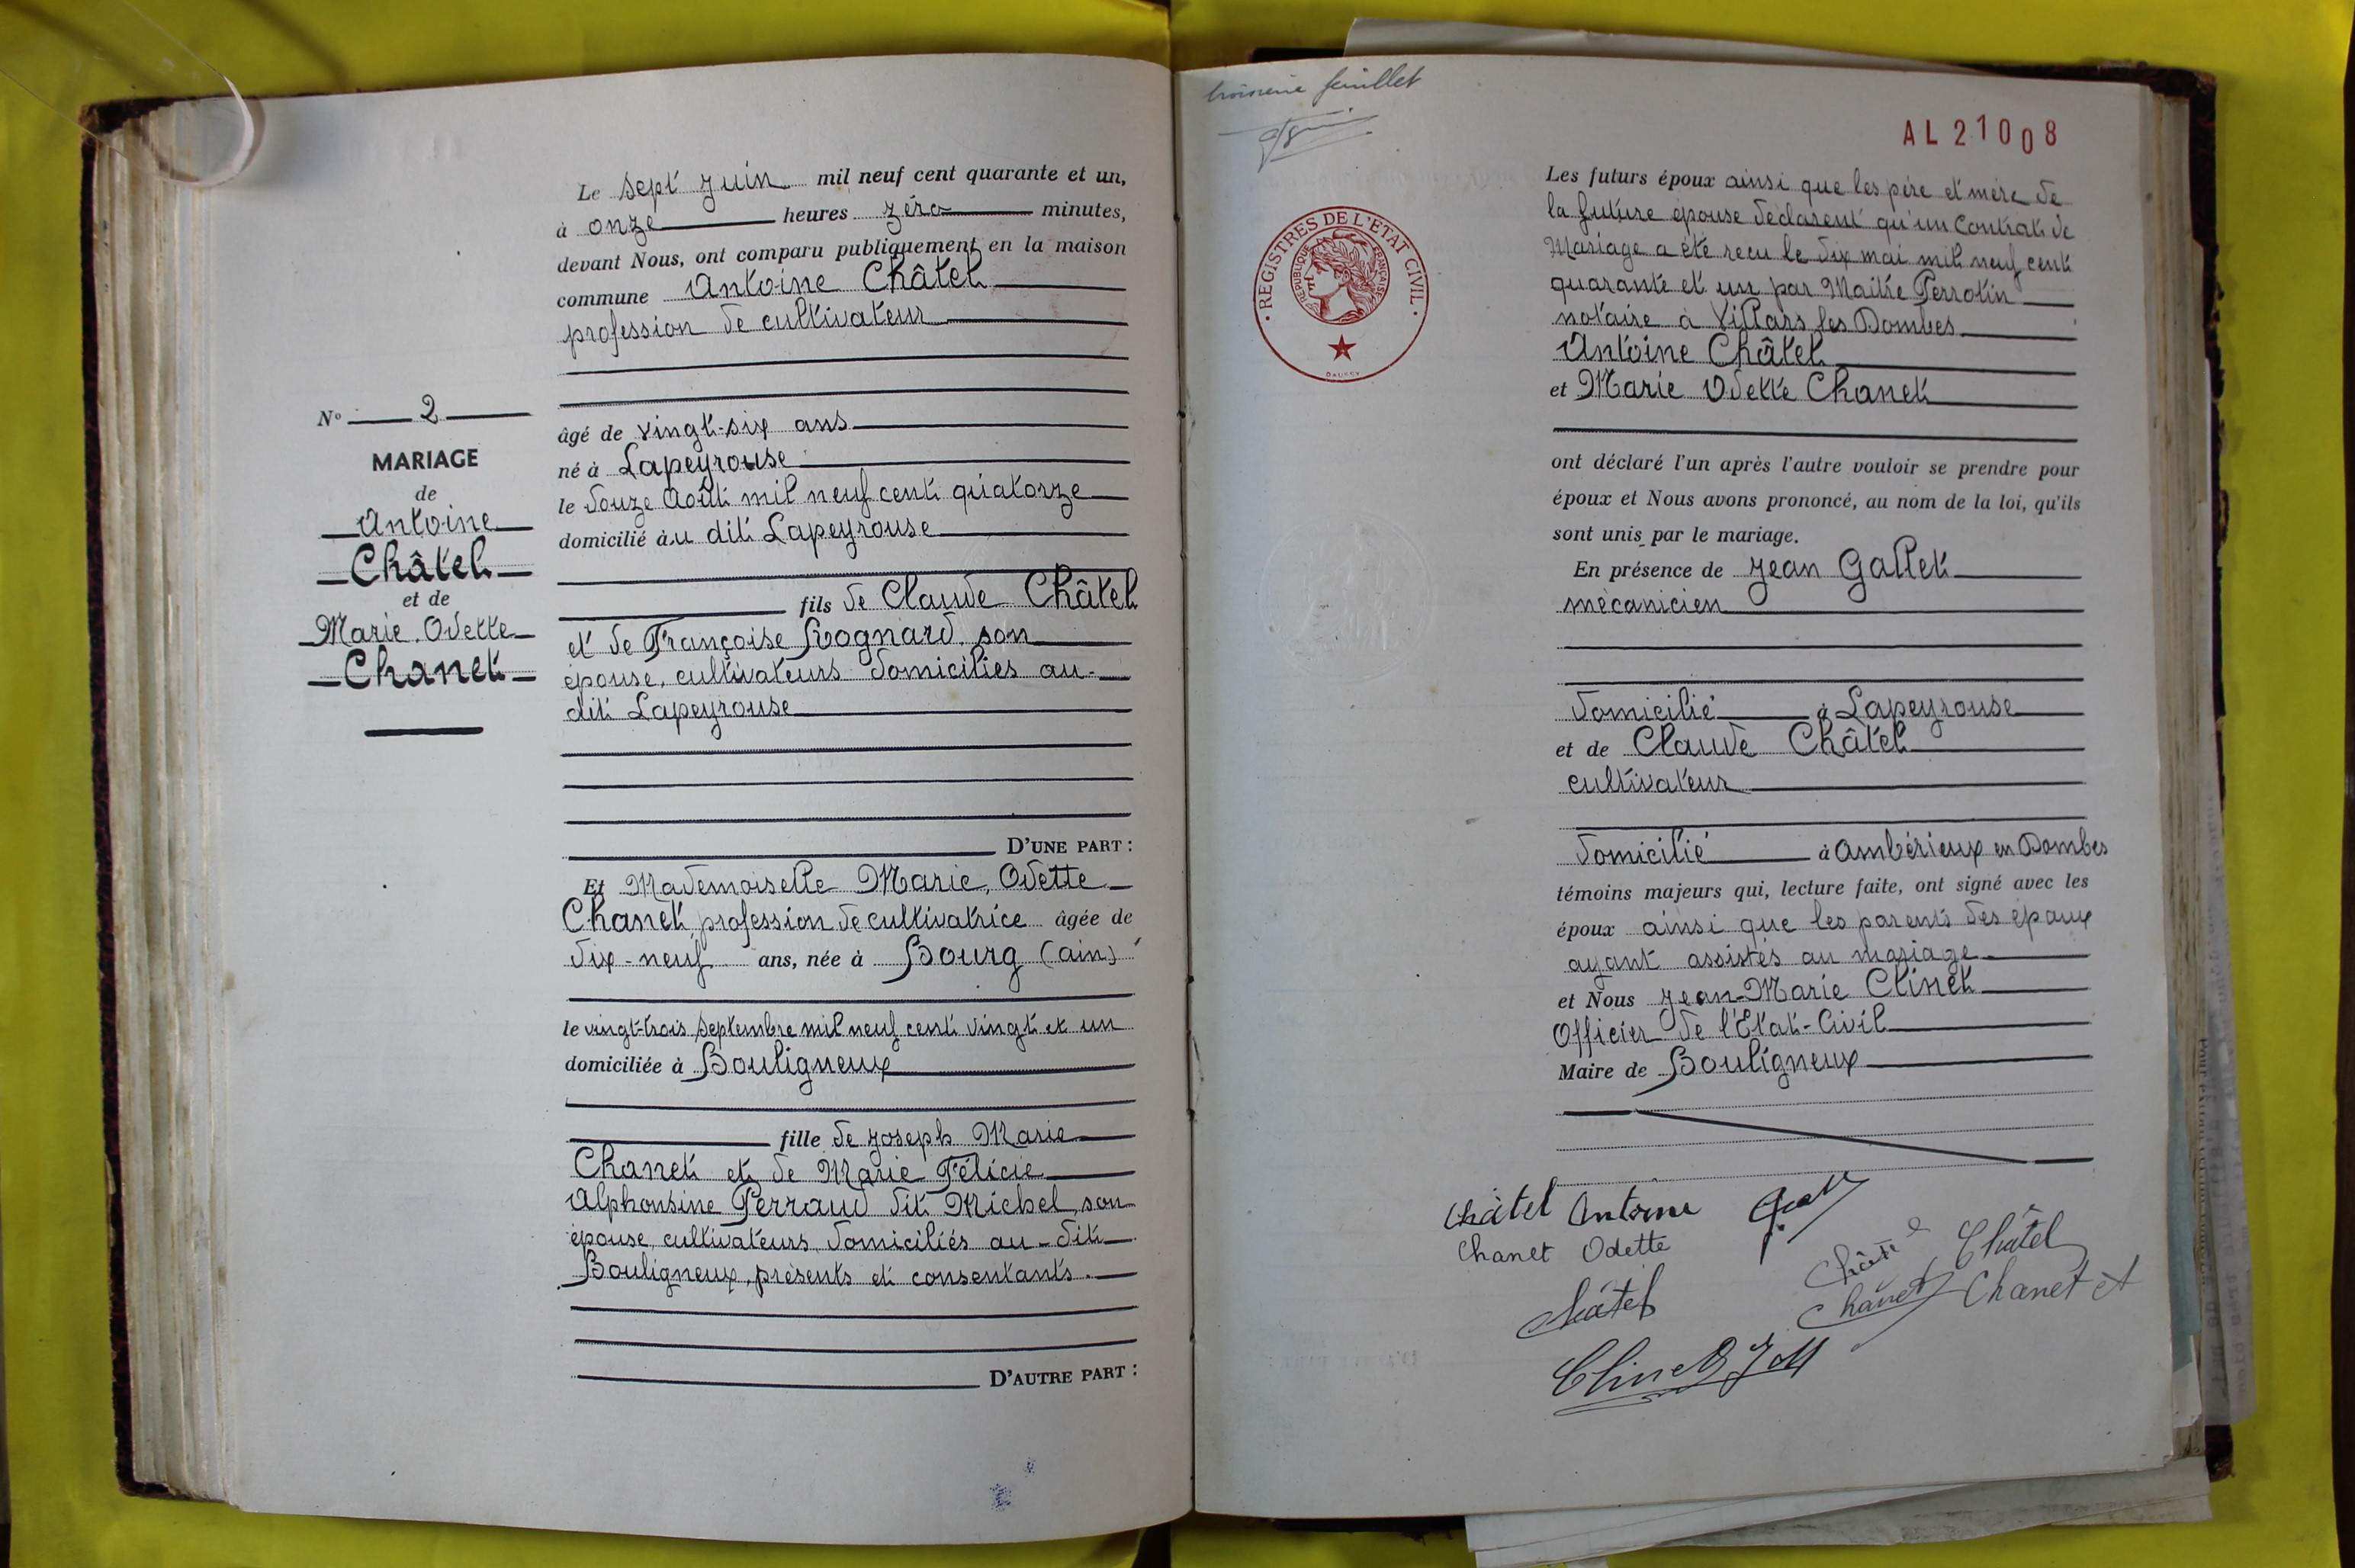 Le sept Juin mil neuf cent quarante et un,
à onze heures zéro minutes,
devant Nous, ont comparu publiquement en la maison
commune Antoine Châtel
profession de cultivateur
âgé de vingt-six ans
né à Lapeyrouse
le douze Août mil neuf cent quatorze
domicilié au dit Lapeyrouse
fils de Claude Châtel
et de Françoise Rognard son
épouse, cultivateurs domiciliés au-
dit Lapeyrouse
D'UNE PART :
N° 2
MARIAGE
de
Antoine
Châtel
et de
Marie. Odette
Chanet
Et Mademoiselle Marie, Odette
Chanet profession de cultivatrice âgée de
dix-neuf ans, née à Bourg (ain)
le vingt-trois septembre mil neuf cent vingt et un
domiciliée à Bouligneux
fille de Joseph Marie
Chanet et de Marie Félicie
Alphonsine Perraud dit Michel, son
épouse, cultivateurs domiciliés au-dit
Bouligneux, présents et consentants.
D'AUTRE PART :
troisième feuillet
AL21008
REGISTRES DE L'ETAT CIVIL
REPUBLIQUE FRANÇAISE
Les futurs époux ainsi que les père et mère de
la future épouse déclarent qu'un Contrat de
Mariage a été reçu le dix mai mil neuf cent
quarante et un par Maître Perrotin
notaire à Villars les Dombes
Antoine Châtel
et Marie Odette Chanet
ont déclaré l'un après l'autre vouloir se prendre pour
époux et Nous avons prononcé, au nom de la loi, qu'ils
sont unis par le mariage.
En présence de Jean Gallet
mécanicien
domicilié à Lapeyrouse
et de Claude Châtel
cultivateur
domicilié à Ambérieux en Dombes
témoins majeurs qui, lecture faite, ont signé avec les
époux ainsi que les parents des époux
ayant assistés au mariage
et Nous Jean-Marie Clinet
Officier de l'Etat-Civil
Maire de Bouligneux
Châtel Antoine
Chanet Odette
Châtel
Châtel
Chanet Chanet
Clinet JM